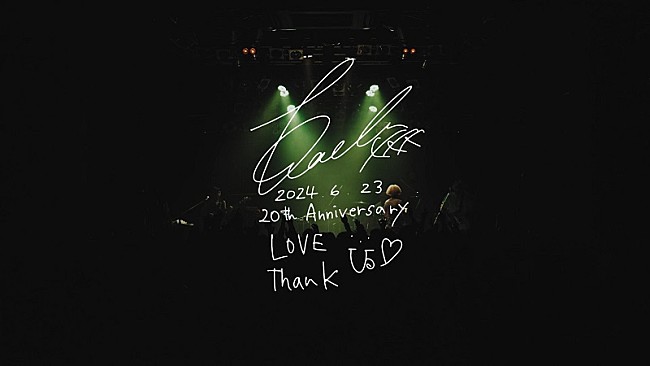 Kaela xxx
2024 6 23
20th Anniversary
LOVE
Thank ♡